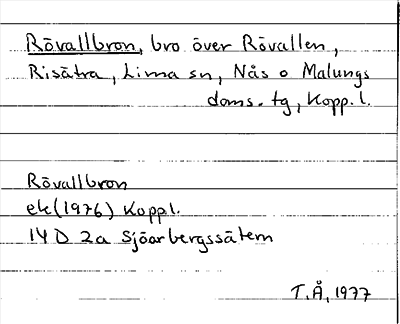 Rövallbron, bro över Rövallen,
Risätra, Lima sn, Nås o Malungs
doms. tg, Kopp. l.
Rövallbron
ek(1976) Koppl.
14 D 2a Sjöarbergssätern
T.Å, 1977